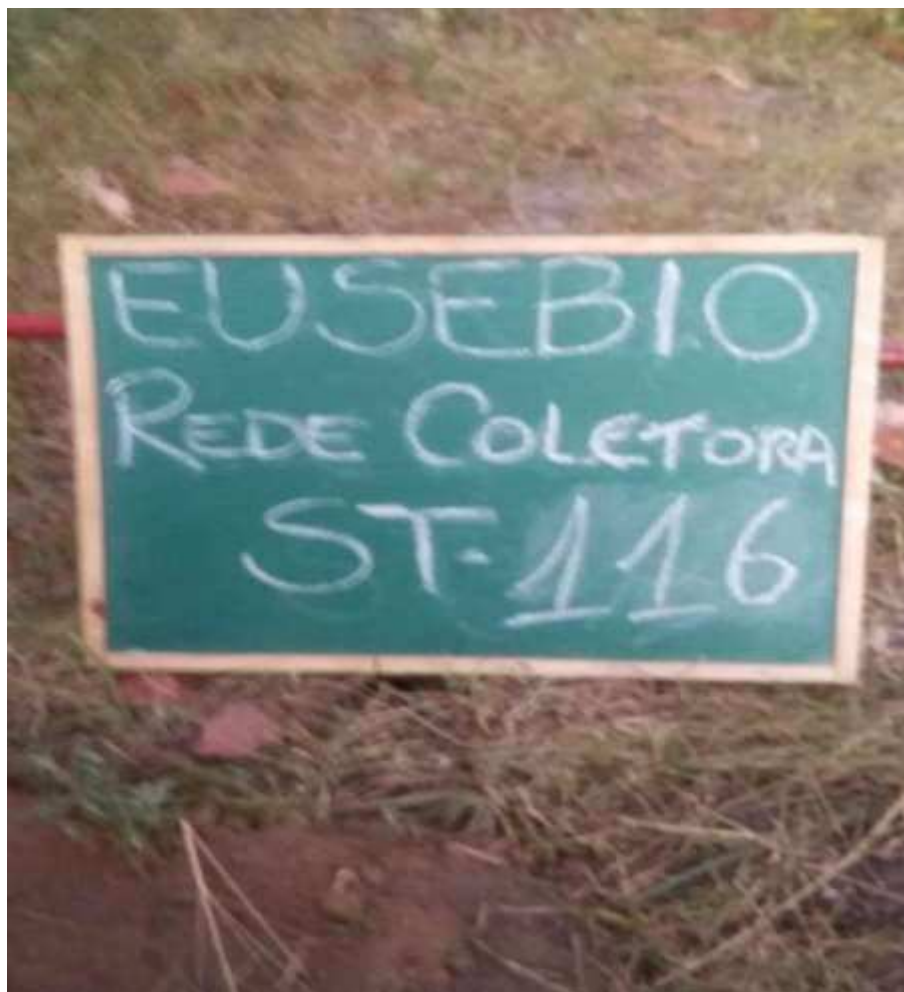 EUSEBIO
REDE COLETORA
ST-116